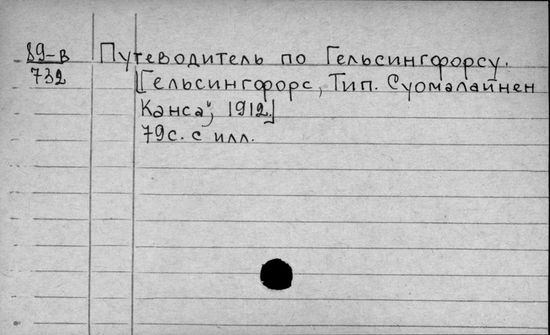 89-в Путеводитель по Гельсингфорсу.
732 [Гельсингфорс, Тип. Суомалайнен
Канса", 1912.]
79с. с илл.